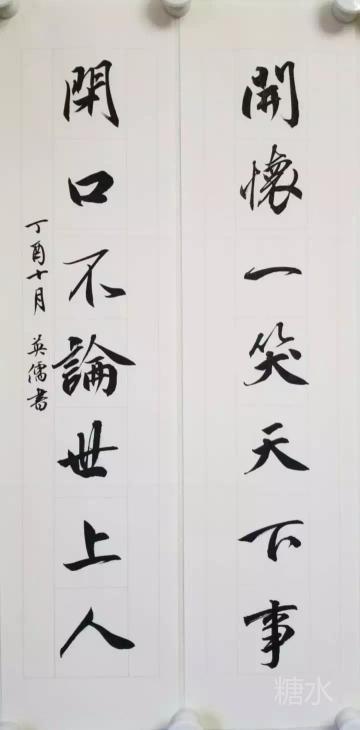 開懷一笑天下事
閉口不論世上人
丁酉十月 英儒書
糖水